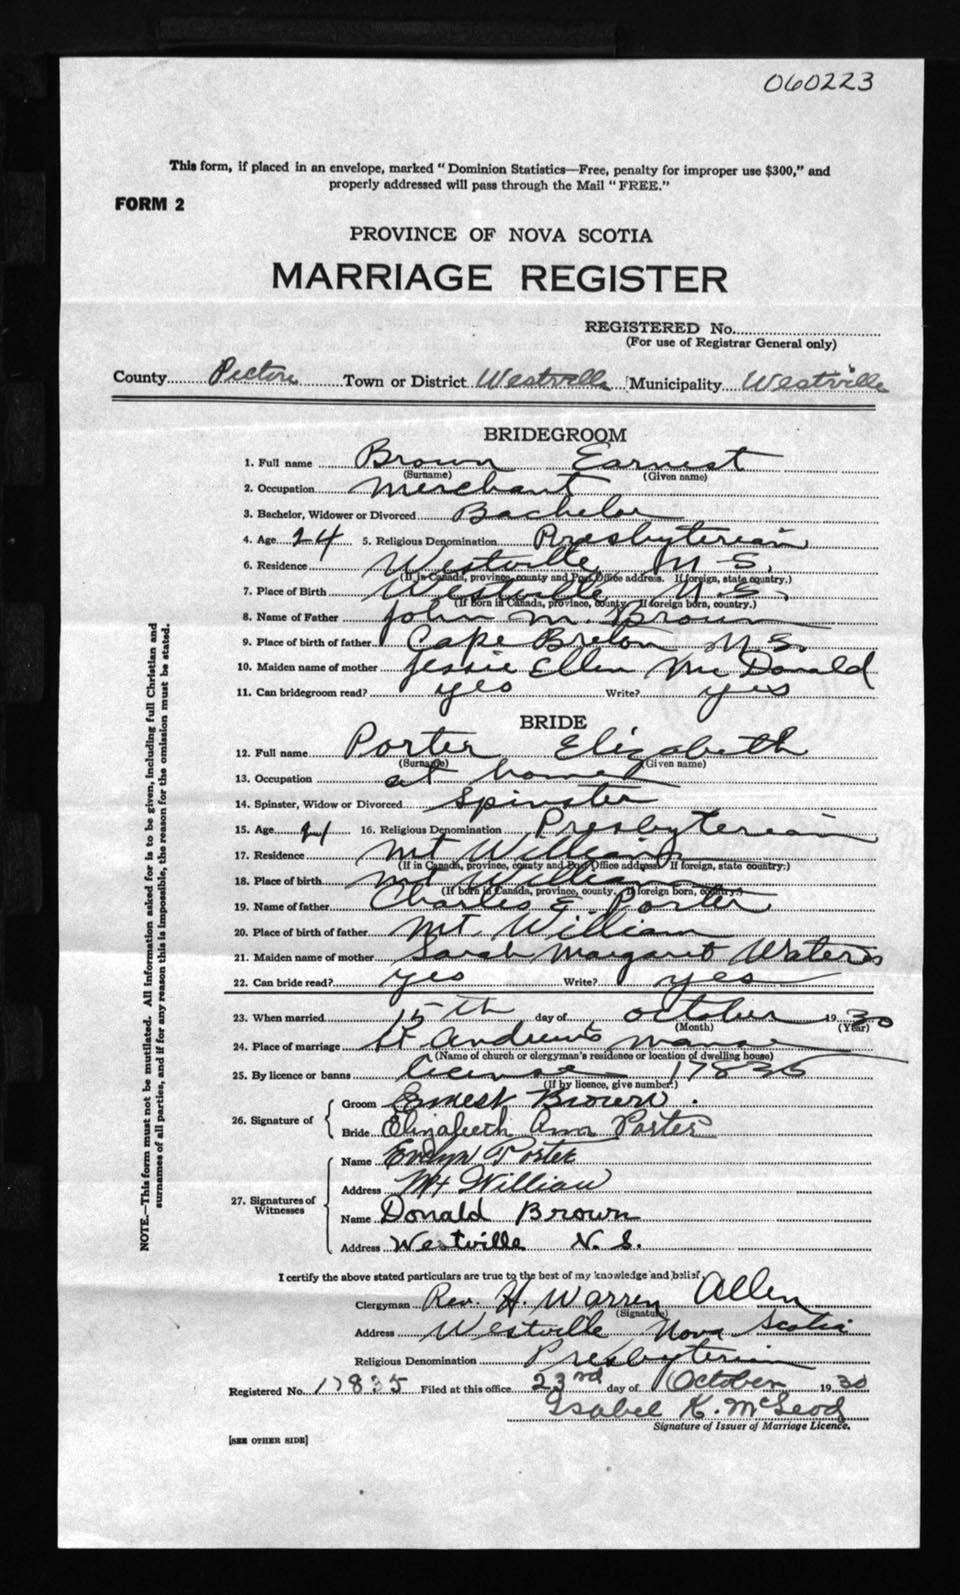 060223
This form, if placed in an envelope, marked "Dominion Statistics—Free, penalty for improper use $300," and
properly addressed will pass through the Mail "FREE."
FORM 2
PROVINCE OF NOVA SCOTIA
MARRIAGE REGISTER
REGISTERED No.
(For use of Registrar General only)
County Pictou Town or District Westville Municipality Westville
BRIDEGROOM
1. Full name Brown Earnest
(Surname) (Given name)
2. Occupation Merchant
3. Bachelor, Widower or Divorced Bachelor
4. Age 24 5. Religious Denomination Presbyterian
6. Residence Westville N.S.
(If in Canada, province, county and Post Office address. If foreign, state country.)
7. Place of Birth Westville N.S.
(If born in Canada, province, county. If foreign born, country.)
8. Name of Father John M. Brown
9. Place of birth of father Cape Breton N.S.
10. Maiden name of mother Jessie Ellen McDonald
11. Can bridegroom read? yes Write? yes
BRIDE
12. Full name Porter Elizabeth
(Surname) (Given name)
13. Occupation at home
14. Spinster, Widow or Divorced Spinster
15. Age 21 16. Religious Denomination Presbyterian
17. Residence Mt William
(If in Canada, province, county and Post Office address. If foreign, state country.)
18. Place of birth Mt William
(If born in Canada, province, county. If foreign born, country.)
19. Name of father Charles E. Porter
20. Place of birth of father Mt. William
21. Maiden name of mother Sarah Margaret Waters
22. Can bride read? yes Write? yes
23. When married 15th day of October 1930
(Month) (Year)
24. Place of marriage St Andrew's Manse
(Name of church or clergyman's residence or location of dwelling house)
25. By licence or banns license 17835
(If by licence, give number.)
26. Signature of { Groom Ernest Brown.
Bride Elizabeth Ann Porter
27. Signatures of Witnesses { Name Evelyn Porter
Address Mt William
Name Donald Brown
Address Westville N.S.
I certify the above stated particulars are true to the best of my knowledge and belief.
Clergyman Rev. H. Warren Allen
(Signature)
Address Westville Nova Scotia
Religious Denomination Presbyterian
Registered No. 17835 Filed at this office 23rd day of October 1930
Isabel K. McLeod
Signature of Issuer of Marriage Licence.
[SEE OTHER SIDE]
NOTE.—This form must not be mutilated. All information asked for is to be given, including full Christian and
surnames of all parties, and if for any reason this is impossible, the reason for the omission must be stated.